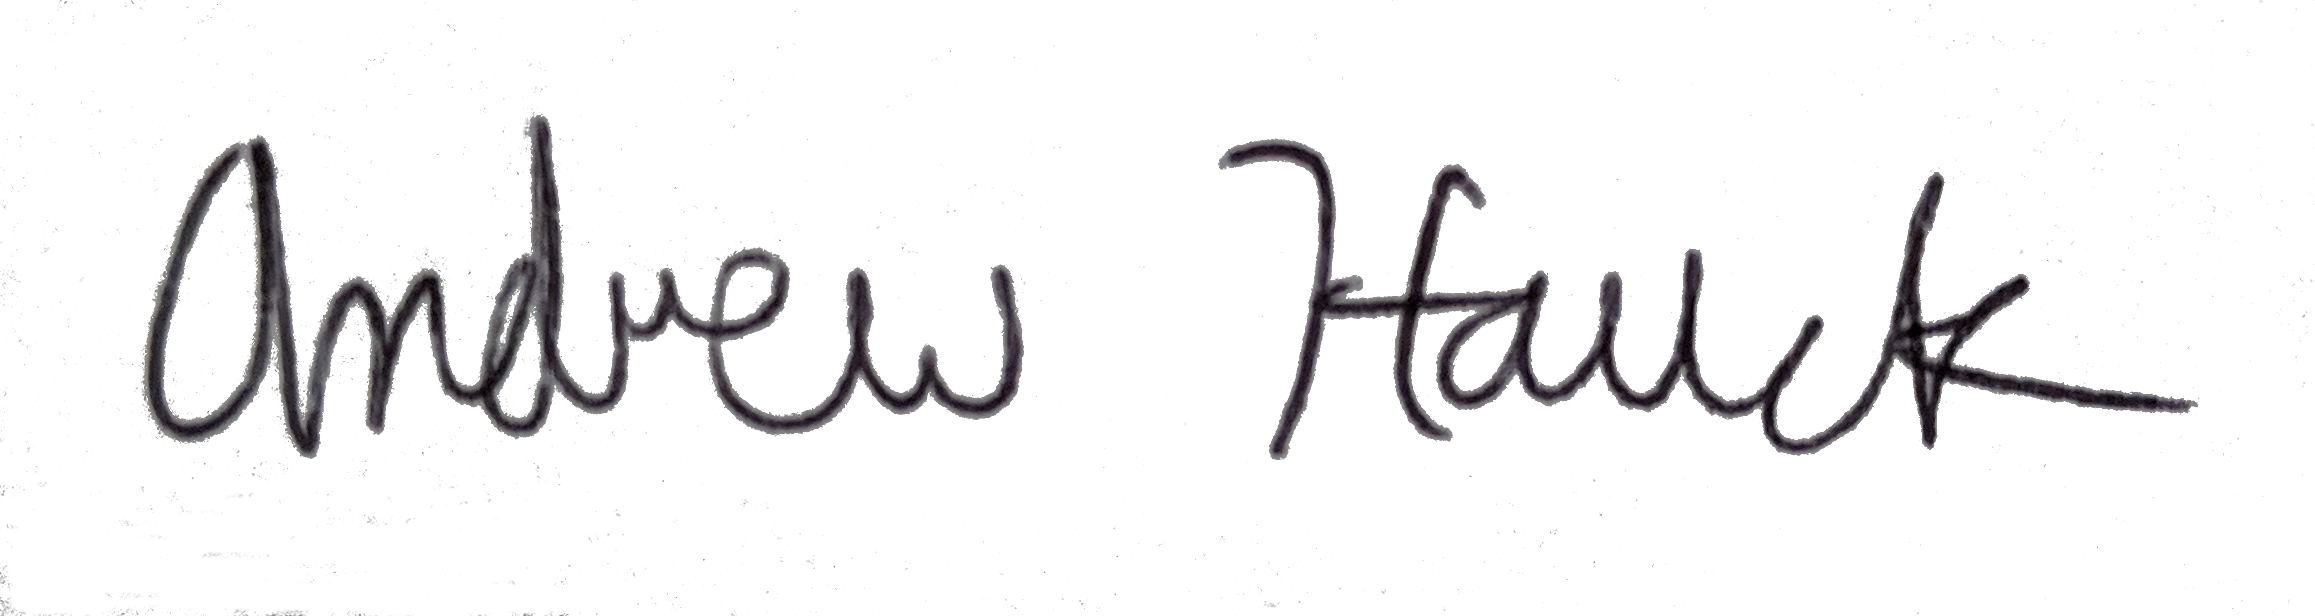 Andrew Hauck